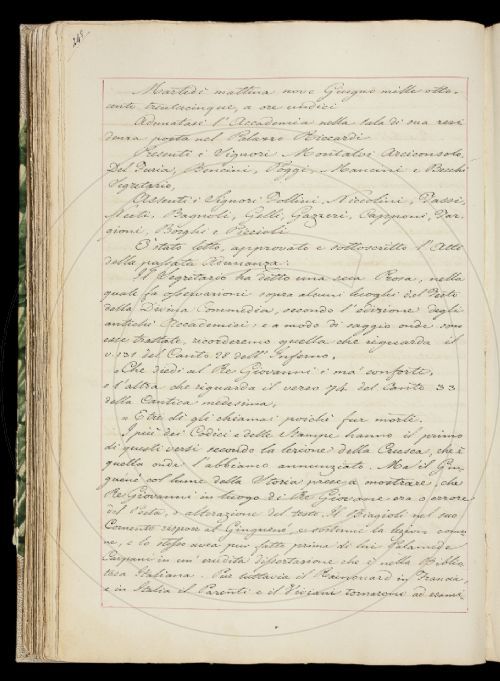 248.
Martedì mattina nove Giugno mille otto-
cento trentacinque, a ore undici
Adunatasi l'Accademia nella sala di sua resi
denza posta nel Palazzo Riccardi
Presenti i Signori Montalvi Arciconsolo,
Del Furia, Bencini, Poggi, Mancini e Becchi
Segretario,
Assenti i Signori Follini, Niccolini, Tassi,
Nesti, Bagnoli, Gelli, Gazzeri, Capponi, Tar-
gioni, Borghi e Piccioli
È stato letto, approvato e sottoscritto l'Atto
della passata Adunanza.
Il Segretario ha detto una sua Prosa, nella
quale fa osservazioni sopra alcuni luoghi del Testo
della Divina Commedia, secondo l'edizione degli
antichi Accademici: e a modo di saggio onde son
esse trattate, ricorderemo quella che riguarda il
v. 135 del Canto 28 dell'Inferno,
"Che diedi al Re Giovanni i ma' conforti,
e l'altra che riguarda il verso 74 del Canto 33
della Cantica medesima,
"E tre dì gli chiamai poichè fur morti.
I più dei Codici e delle Stampe hanno il primo
di questi versi secondo la lezione della Crusca, che è
quella onde l'abbiamo annunziato. Ma il Gin-
guené col lume della Storia prese a mostrare, che
Re Giovanni in luogo di Re Giovane era o errore
del Poeta, o alterazione del testo. Il Biagioli nel suo
Comento rispose al Ginguené, e sostenne la lezion comu
ne, e lo stesso avea pur fatto prima di lui Palamede
Carpani in un' erudita dissertazione che è nella Biblio
teca Italiana. Pur tuttavia il Rainouard in Francia,
e in Italia il Parenti e il Viviani tornarono ad esami